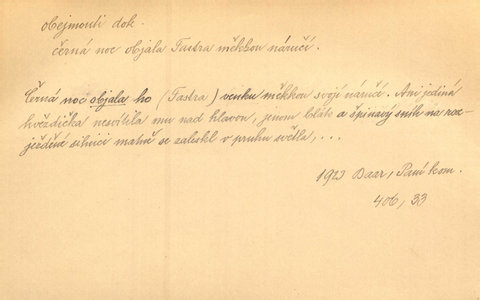 obejmouti dok.
černá noc objala Fastra měkkou náručí.
Černá noc objala ho (Fastra) venku měkkou svojí náručí. Ani jediná
hvězdička nesvítila mu nad hlavou, jenom bláto a špinavý sníh na roz-
ježděné silnici matně se zaleskl v pruhu světla, ...
1923 Baar, Paní kom.
406, 33